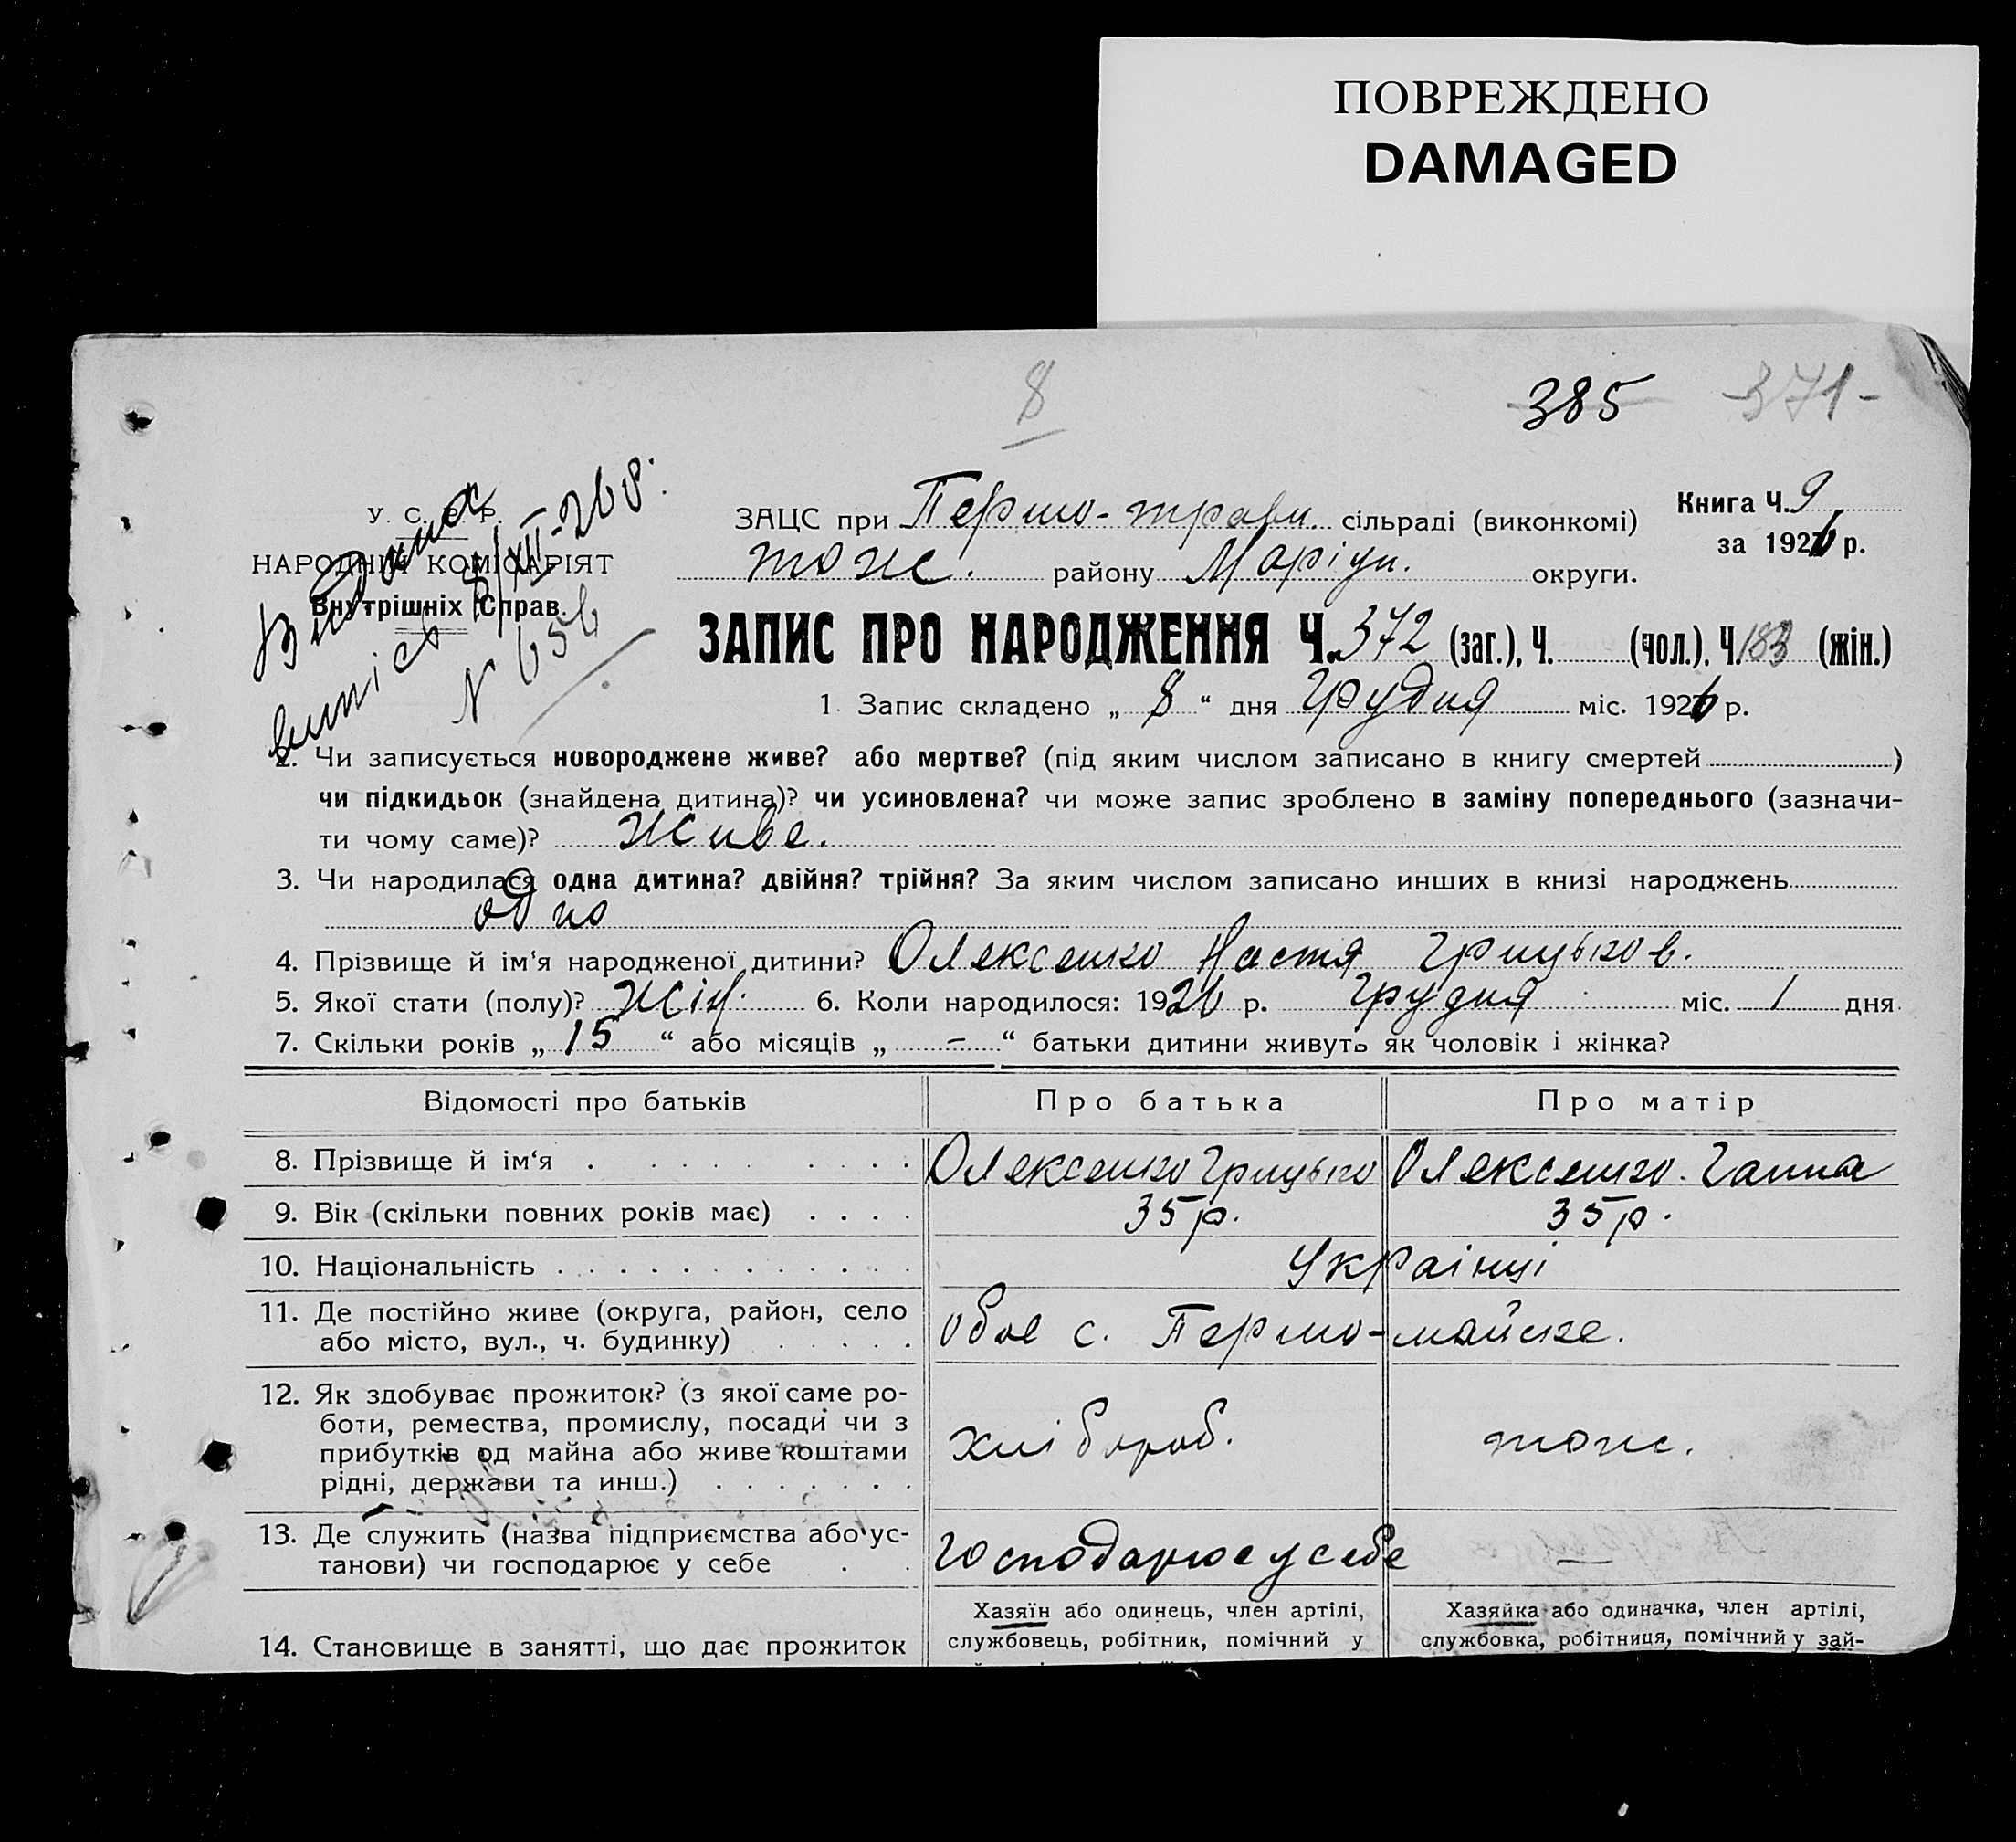 ПОВРЕЖДЕНО
DAMAGED
8
385 371-
У. С. С. Р.
НАРОДНИЙ КОМІСАРІЯТ
Внутрішніх Справ.
Видана
витіс 8/XII-26 р.
N 656
ЗАЦС при Першо-травн. сільраді (виконкомі)
Книга Ч. 9
за 1926 р.
тож. району Маріуп. округи.
ЗАПИС ПРО НАРОДЖЕННЯ Ч. 372 (заг.), Ч. (чол.), Ч. 183 (жін.)
1. Запис складено „ 8 “ дня Грудня міс. 1926 р.
2. Чи записується новороджене живе? або мертве? (під яким числом записано в книгу смертей )
чи підкидьок (знайдена дитина)? чи усиновлена? чи може запис зроблено в заміну попереднього (зазначи-
ти чому саме)? Живе.
3. Чи народилася одна дитина? двійня? трійня? За яким числом записано инших в книзі народжень
одно
4. Прізвище й ім‘я народженої дитини? Олексенко Настя Грицьков.
5. Якої стати (полу)? Жін. 6. Коли народилося: 1926 р. Грудня міс. 1 дня.
7. Скільки років „ 15 “ або місяців „ - “ батьки дитини живуть як чоловік і жінка?
Відомості про батьків Про батька Про матір
8. Прізвище й ім‘я Олексенко Грицько Олексенко. Ганна
9. Вік (скільки повних років має) 35 р. 35 р.
10. Національність Українці
11. Де постійно живе (округа, район, село
або місто, вул., ч. будинку) обоє с. Першо-майське.
12. Як здобуває прожиток? (з якої саме ро-
боти, ремества, промислу, посади чи з
прибутків од майна або живе коштами
рідні, держави та инш.)
хлібороб. тож.
13. Де служить (назва підприємства або ус-
танови) чи господарює у себе
господарює у себе —
14. Становище в занятті, що дає прожиток
Хазяїн або одинець, член артілі,
службовець, робітник, помічний у
Хазяйка або одиначка, член артілі,
службовка, робітниця, помічний у зай-